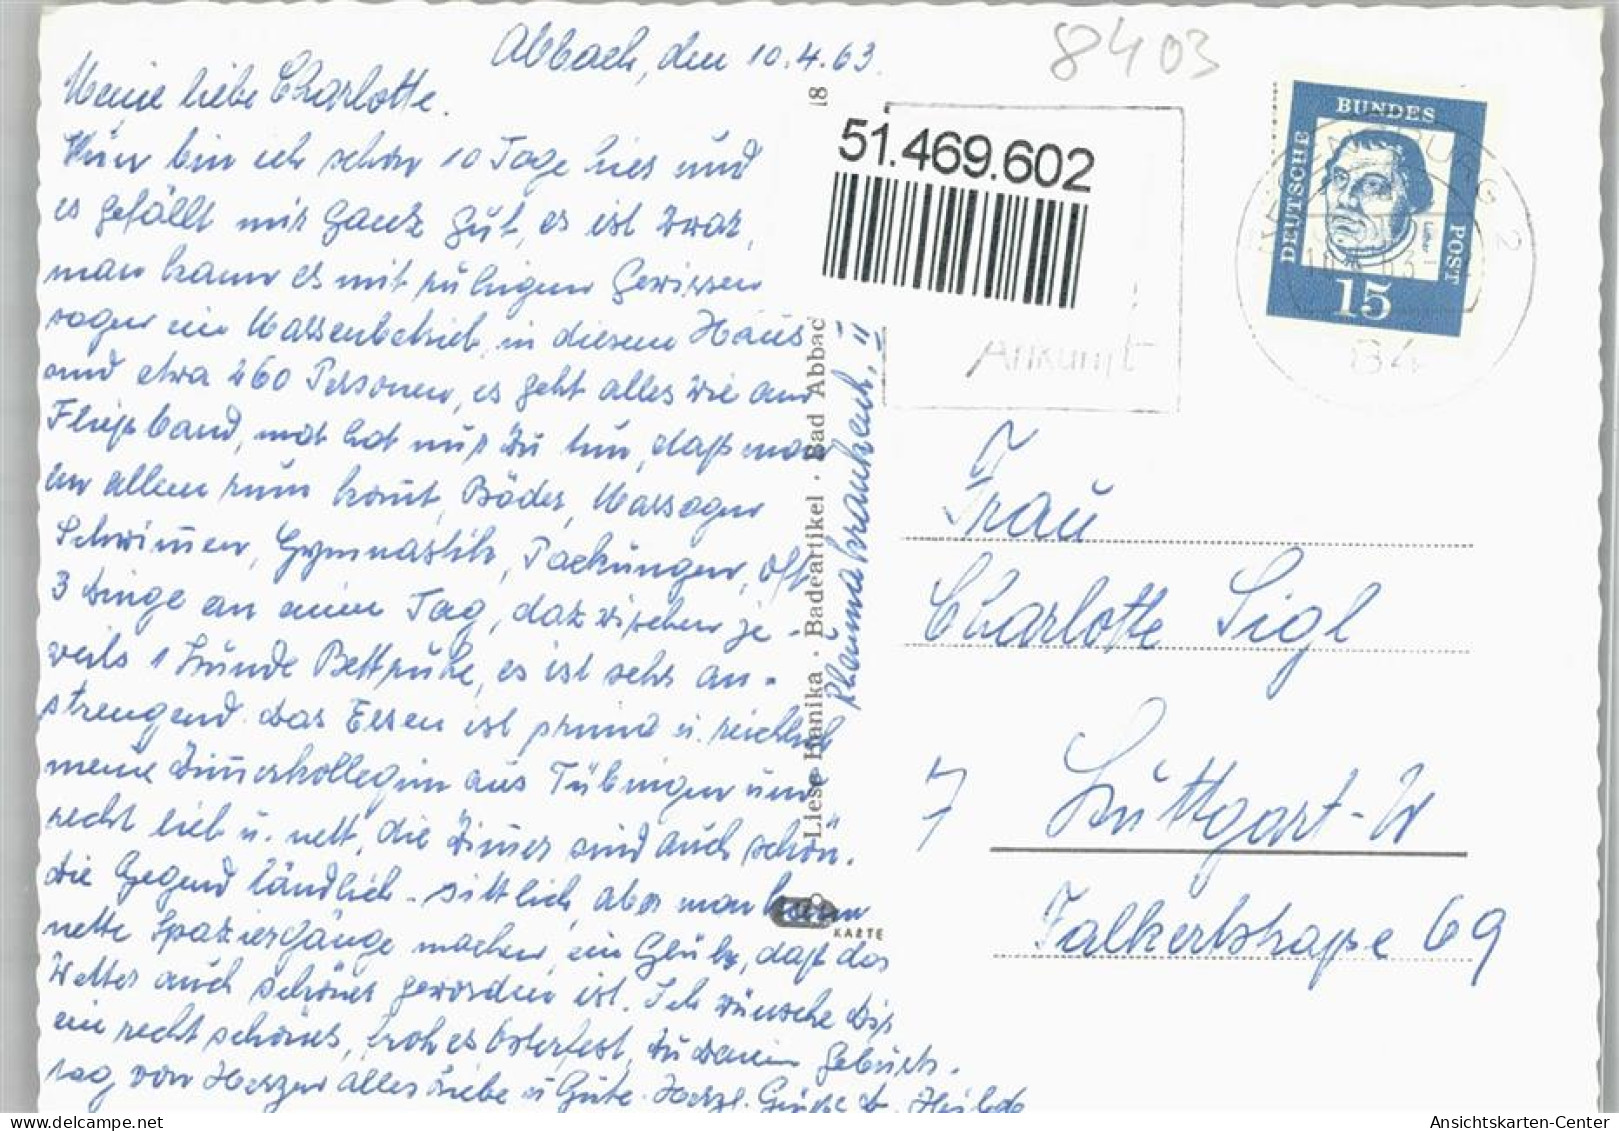 Abbach, den 10.4.63.
Meine liebe Charlotte.
Nun bin ich schon 10 Tage hier und
es gefällt mir ganz gut, es ist zwar,
man kann es mit ruhigem Gewissen
sagen ein Massenbetrieb, in diesem Haus
sind etwa 260 Personen, es geht alles wie am
Fließband, man hat nur zu tun, daß man
an allem rum komt, Bäder, Massagen
Schwimen, Gymnastik, Packungen, oft
3 Dinge an einem Tag, dazwischen je-
weils 1 Stunde Bettruhe, es ist sehr an-
strengend. Das Essen ist prima u. reichlich
meine Zimerkollegin aus Tübingen
recht lieb u. nett, die Zimer sind auch schön.
Die Gegend ländlich-sittlich, aber man kann
nette Spaziergänge machen, ein Glück, daß das
Wetter auch schöner geworden ist. Ich wünsche Dir
ein recht schönes, frohes Osterfest, zu Deinem Geburts-
tag von Herzen alles Liebe u Gute. Herzl. Grüße D. Hilde
Rheumakrankenh. II
Liese Hanika · Badeartikel · Bad Abbach
18
KARTE
8403
51.469.602
Ankunft
DEUTSCHE
BUNDES
POST
15
2
84
Frau
Charlotte Sigl
7 Stuttgart-W
Falkertstraße 69
Ansichtskarten-Center